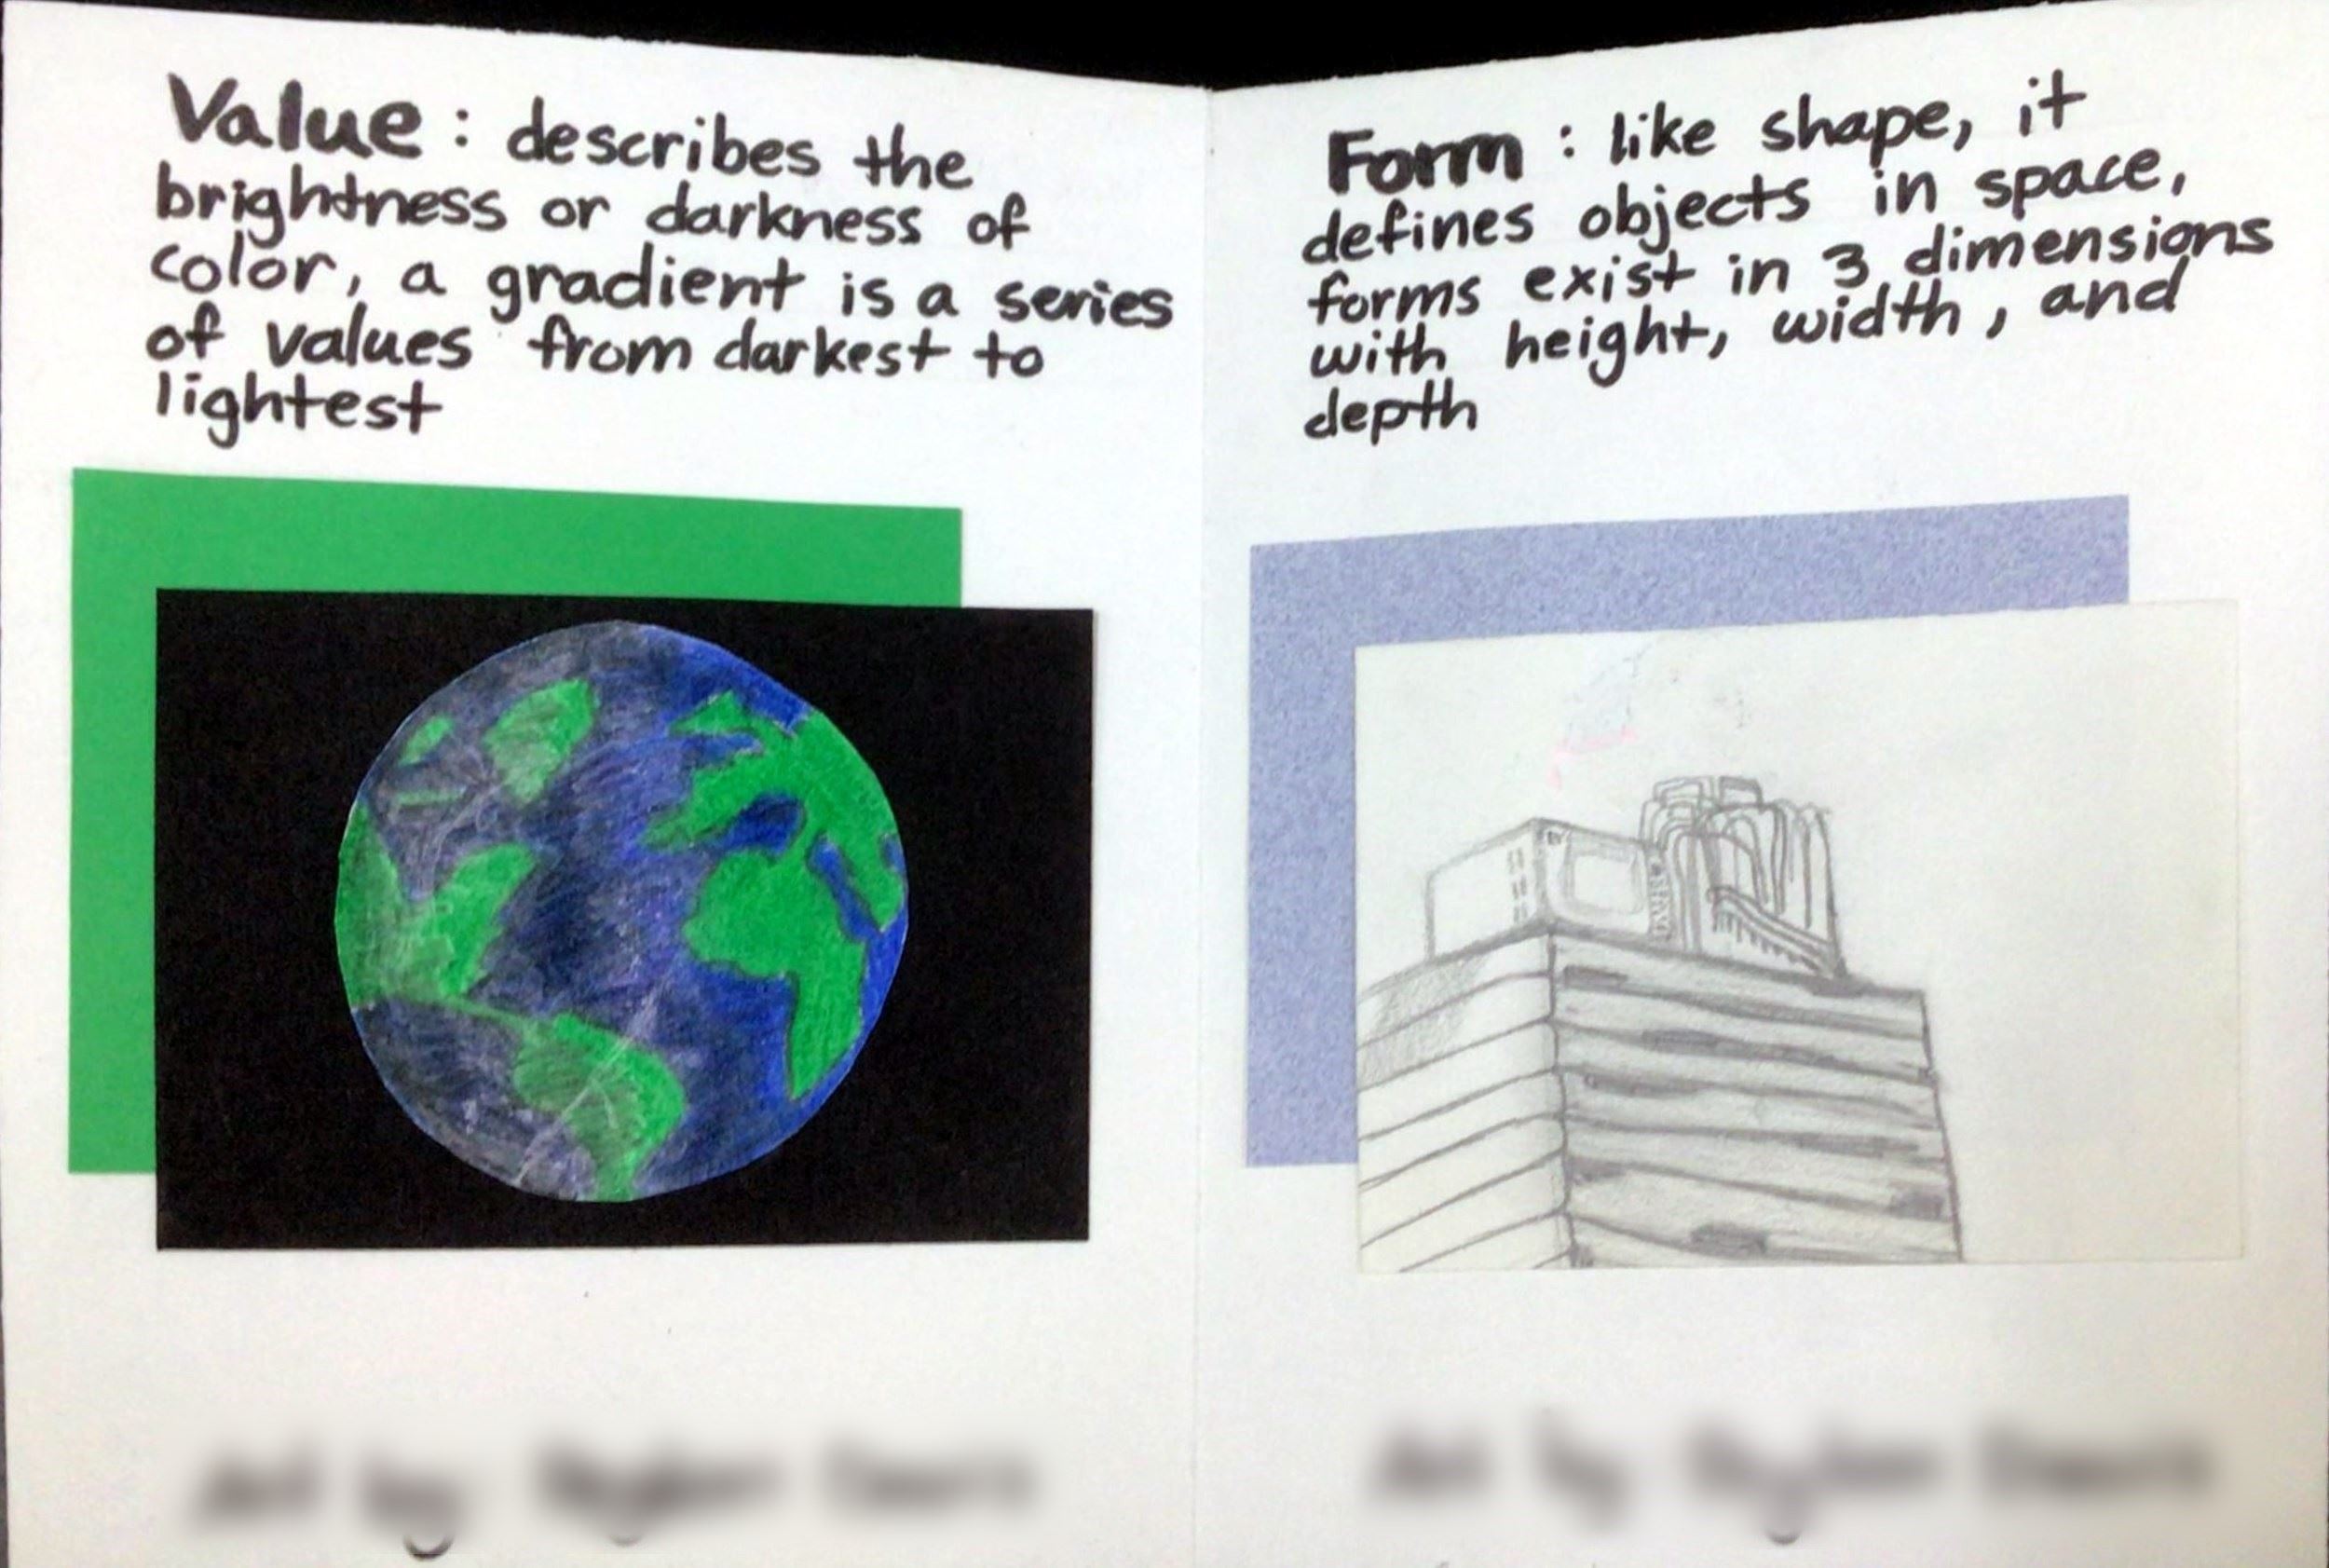 Value : describes the
brightness or darkness of
color, a gradient is a series
of values from darkest to
lightest
Form : like shape, it
defines objects in space,
forms exist in 3 dimensions
with height, width, and
depth